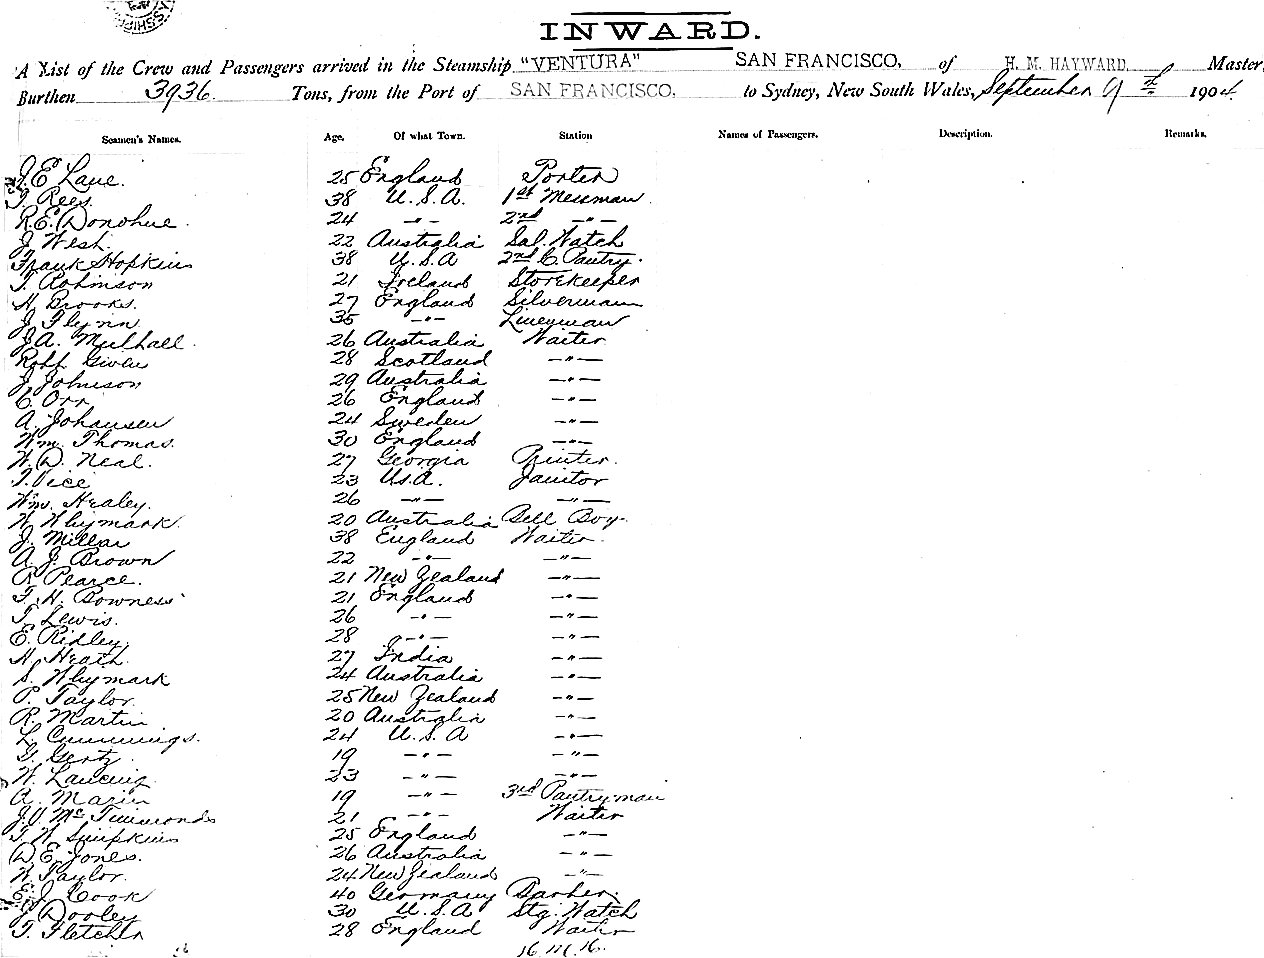 INWARD.
A List of the Crew and Passengers arrived in the Steamship "VENTURA" SAN FRANCISCO, of H. M. HAYWARD, Master,
Burthen 3936 Tons, from the Port of SAN FRANCISCO, to Sydney, New South Wales, September 9th 1904
Seamen's Names. Age. Of what Town. Station Names of Passengers. Description. Remarks.
J. E. Lane. 25 England Porter
T. Rees. 38 U.S.A. 1st Messman
R.E. Donohue. 24 -"- 2nd -"-
J. West. 22 Australia Sal. Watch
Frank Hopkins 38 U.S.A 2nd C. Pantry.
T. Robinson 21 Ireland Storekeeper
H. Brooks. 27 England Silverman
J. Flynn 35 -"- Lineyman
J.A. Mulhall. 26 Australia Waiter
Robt. Given 28 Scotland -"-
J. Johnson 29 Australia -"-
C. Orr 26 England -"-
A. Johansen 24 Sweden -"-
Wm. Thomas. 30 England -"-
W. D. Neal. 27 Georgia Printer.
T. Vice 23 U.S.A. Janitor
Wm. Healey. 26 -"- -"-
W. Whymark. 20 Australia Bell Boy.
J. Millar 38 England Waiter.
A. J. Brown 22 -"- -"-
R. Pearce. 21 New Zealand -"-
T. H. Bowness 21 England -"-
T. Lewis. 26 -"- -"-
E. Ridley. 28 -"- -"-
H. Heath. 27 India -"-
S. Whymark 24 Australia -"-
P. Taylor. 25 New Zealand -"-
R. Martin 20 Australia -"-
L. Cummings. 24 U.S.A -"-
G. Gertz. 19 -"- -"-
W. Lancing. 23 -"- -"-
A. Marin 19 -"- 3rd Pantryman
J.V. McTimmonds 21 -"- Waiter
T. W. Simpkins 25 England -"-
D. E. Jones. 26 Australia -"-
W. Taylor. 24 New Zealand -"-
E. J. Cook 40 Germany Barber.
J. Dooley 30 U.S.A Stg. Watch
T. Fletcher 28 England Waiter